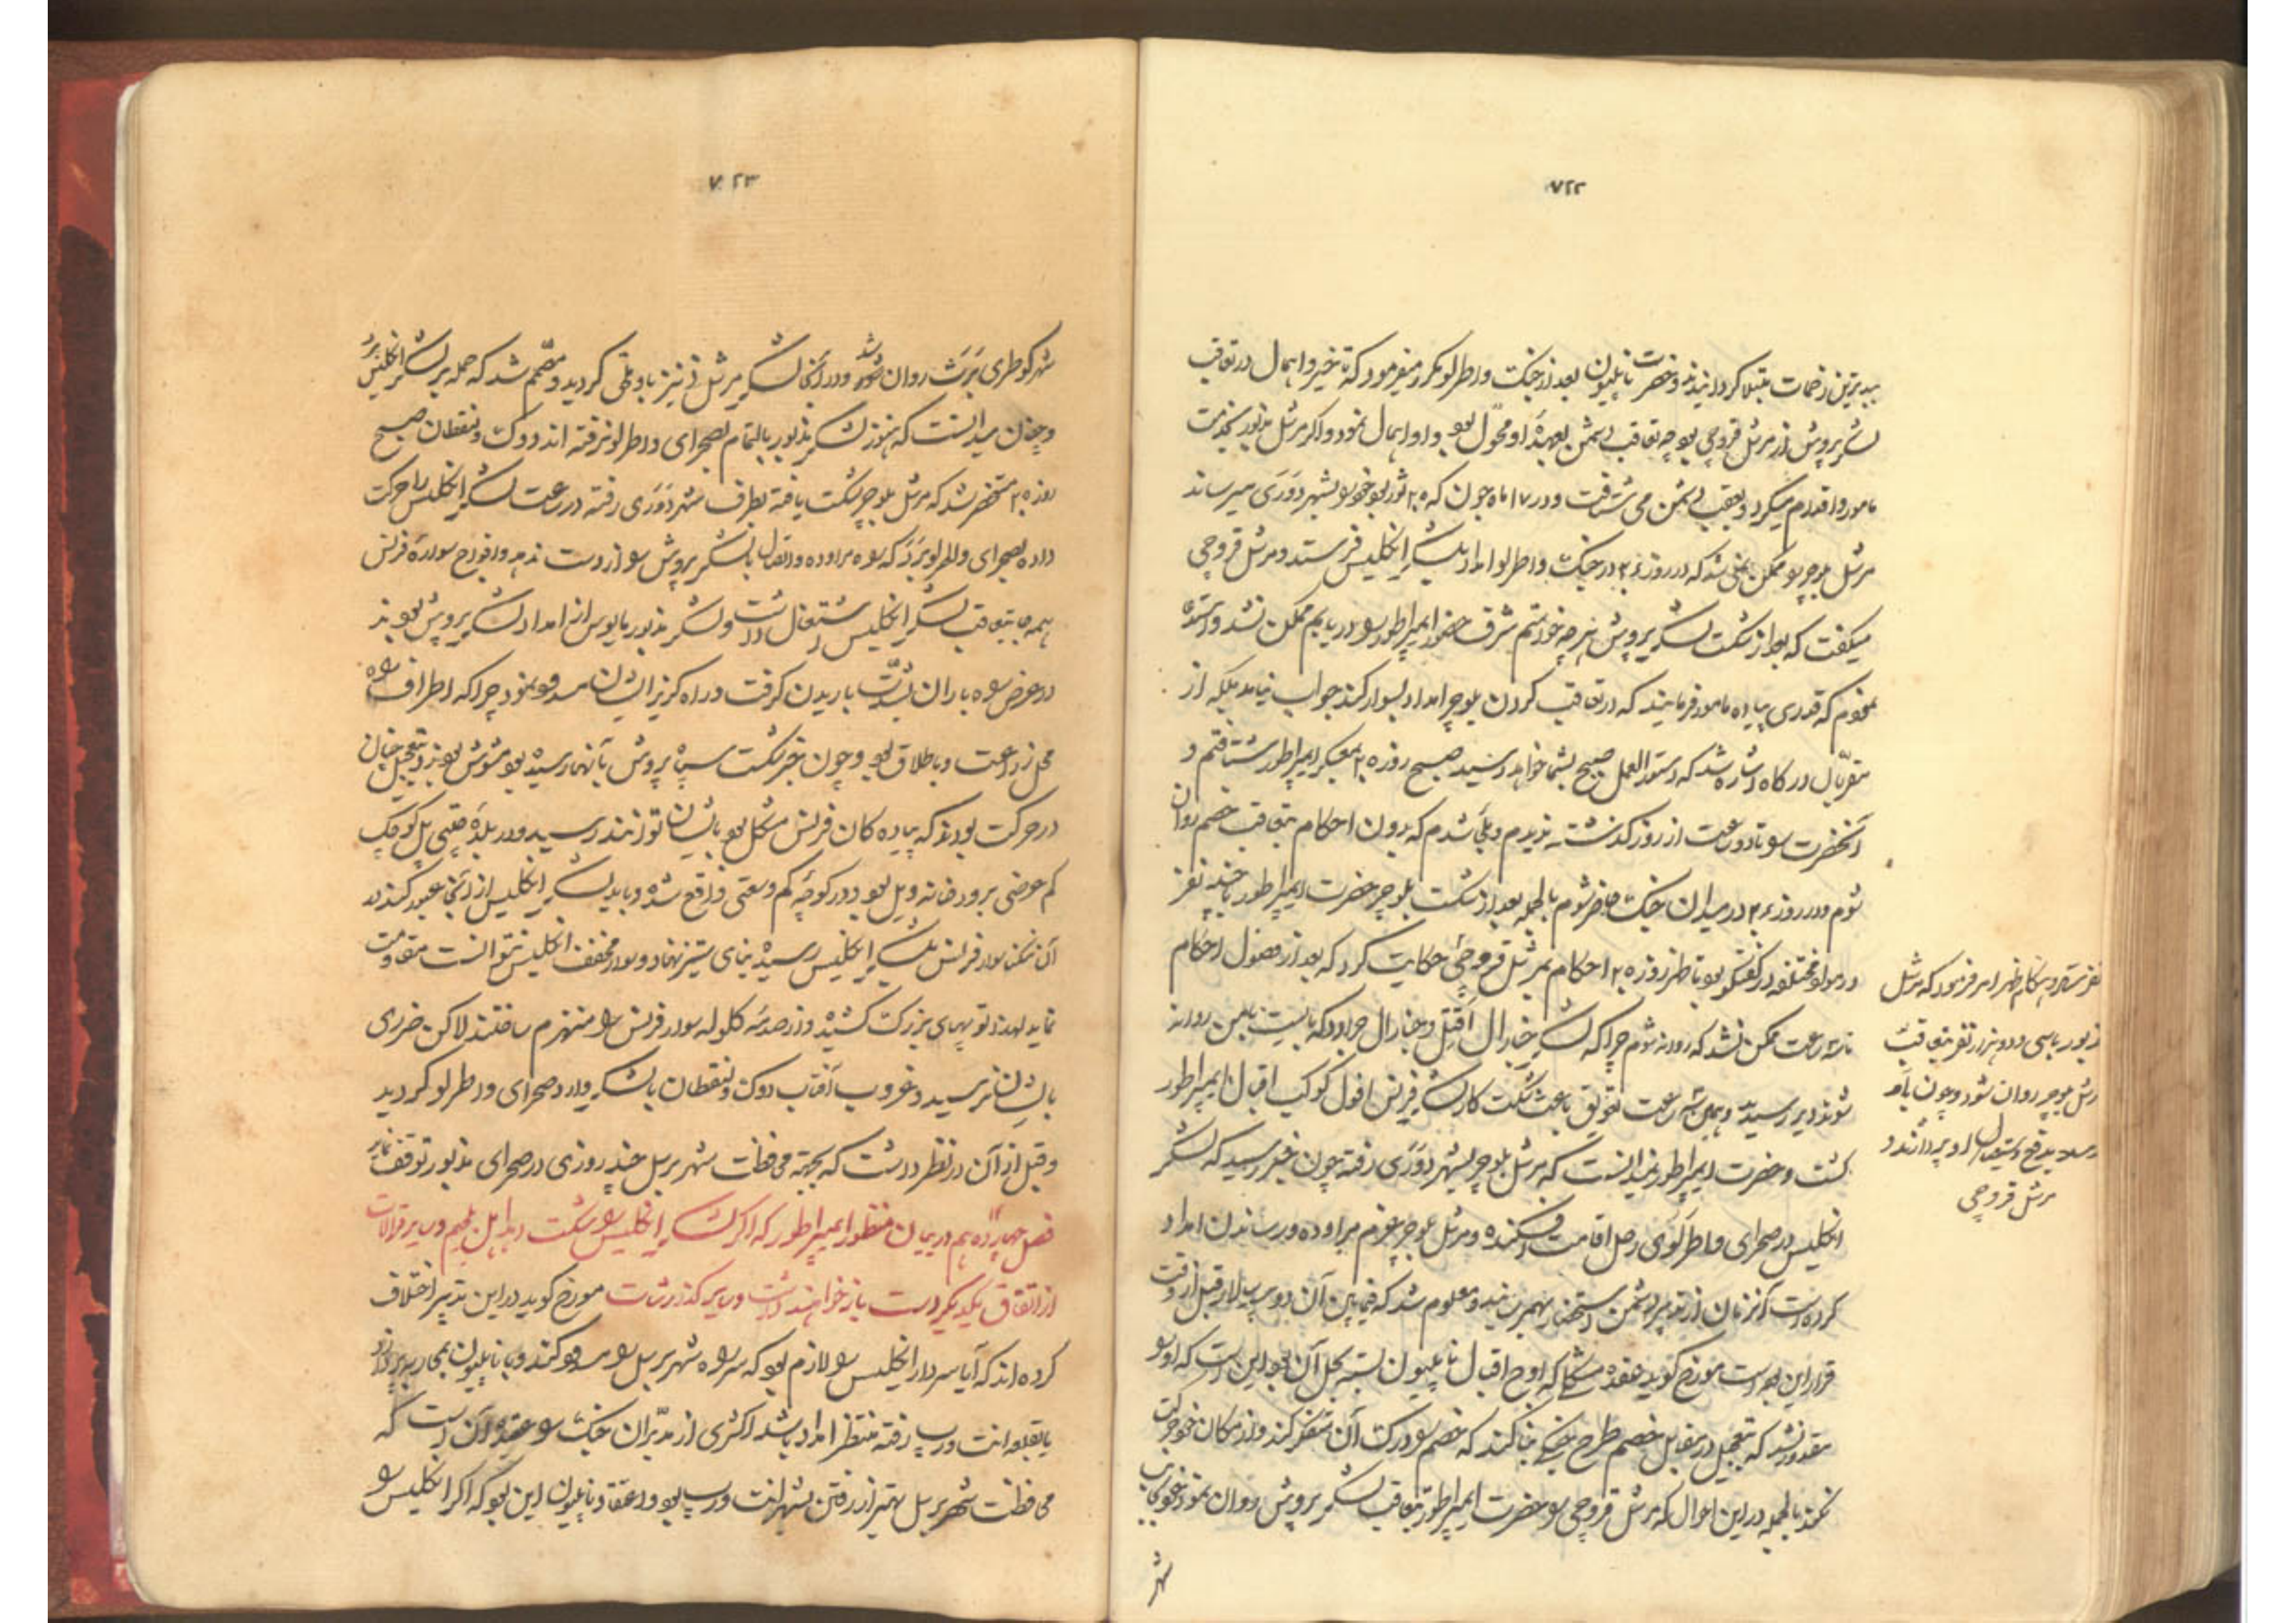 ۷۲۲
ببدترین زحمات مبتلا گردانیدند و حضرت ناپلیون بعد از جنگ واطرلو مکرر میفرمود که تأخیر و اهمال در تعاقب
لشکر پروش از مرشل قروچی بود چه تعاقب دشمن بعهدهٔ او محوّل بود و او اهمال نمود و اگر مرشل مذبور بخدمت
مامور اقدام میکرد و بعقب دشمن می شتافت و در ۱۷ ماه جون که ۲۵ ثور بود خود را بشهر دَوَری میرساند
مرشل بلوچر را ممکن نمی شد که در روز ۲۶ در جنگ واطرلو امداد بلشکر انگلیس فرستد و مرشل قروچی
میگفت که بعد از شکست لشکر پروش هر چه خواستم شرف حضور ایمپراطور را دریابم ممکن نشد و استدعا
نمودم که قدری پیاده مامور فرمایند که در تعاقب کردن بلوچر امداد بسوار کند جواب نیامد بلکه از
مقربّان درگاه اشاره شد که دستورالعمل صبح بشما خواهد رسید صبح روز ۲۵ بمعسکر ایمپراطور شتافتم و
آنحضرت را تا دو ساعت از روز گذشته ندیدم و ملجأ شدم که بدون احکام بتعاقب خصم روان
شوم و در روز ۲۶ در میدان جنگ حاضر شوم بالجمله بعد از شکست بلوچر حضرت ایمپراطور با چند نفر
در مواد مختلفه در گفتگو بود تا ظهر روز ۲۵ احکام بمرشل قروچی حکایت کرد که بعد از حصول احکام
تا سه ساعت ممکن نشد که روانه شوم چرا که لشکر جنارال اَقتِل و جنارال جرارد که بایست با من روانه
شوند دیر رسیدند و همین سه ساعت تعویق باعث شکست کار لشکر فرنس و افول کوکب اقبال ایمپراطور
گشت و حضرت ایمپراطور نمیدانست که مرشل بلوچر بشهر دَوَری رفته چون خبر رسید که لشکر
انگلیس در صحرای واطرلوی رحل اقامت افکنده و مرشل بلوچر بعزم مراوده و رساندن امداد
کرده است آنزمان از تدبیر دشمن استحضار بهم رسانید و معلوم شد که فیما بین آن دو سپهسالار قبل از وقت
قرار این بوده است مورخ گوید عقدهٔ مشکلی که اوج اقبال ناپلیون بسته بحل آن بود این است که او را
مقدور نشد که بتعجیل در مقابل خصم طرح جنگی بنا کند که خصم را در درک آن متفکر کند و از مکان خود حرکت
نکند بالجمله در این احوال که مرشل قروچی را حضرت ایمپراطور بتعاقب لشکر پروش روان نمود خود بجانب
شهر
نفر ستاد و هنگام ظهر امر فرمود که مرشل
مذبور با سی و دو هزار نفر بتعاقب
مرشل بلوچر روان شود و چون باو
رسد بدفع و استیصال او پردازند و
مرشل قروچی
۷۲۳
شهر کوطری بَرَث روان شد و در آنجا لشکر مرشل نی نیز باو ملحق گردید و مصّمم شد که حمله بر لشکر انگلیس برد
و چنان میدانست که هنوز لشکر مذبور بالتمام بصحرای واطرلو نرفته اند و دوک ولنقطان صبح
روز ۲۵ مستحضر شد که مرشل بلوچر شکست یافته بطرف شهر دَوَری رفته در ساعت لشکر انگلیس را حرکت
داده بصحرای واطرلو بَرَد که راه مراوده و اتصال با لشکر پروش را از دست ندهد و افواج سوارهٔ فرنس
همه جا بتعاقب لشکر انگلیس اشتغال داشت و لشکر مذبور مایوس از امداد لشکر پروش بودند
در عرض راه باران بشدّت باریدن گرفت و راه گریز ایشان مسدود نمود چرا که اطراف راه
محل زراعت و باطلاق بود و چون خبر شکست سپاه پروش بآنها رسیده بود مشوش بودند و بتعجیل چنان
در حرکت بودند که پیاده کان فرنس مشکل بود بایشان توانند رسید و در بلدهٔ قتبی پل کوچک
کم عرضی بر رودخانه و پل بود و در کوچهٔ کم وسعتی واقع شده و باید لشکر انگلیس از آنجا عبور کنند در
آن تنگنا سوار فرنس بلشکر انگلیس رسیده بنای ستیز نهاد و سوار مخفف انگلیس نتوانست مقاومت
نماید لهذا توپهای بزرگ کشیده و از صدمهٔ گلوله سوار فرنس را منهزم ساختند لاکن ضرری
بایشان نرسید و غروب آفتاب دوک ولنقطان با لشکر وارد صحرای واطرلو گردید
و قبل از آن در نظر داشت که بجهة محافظت شهر برسل چند روزی در صحرای مذبور توقف نماید
فصل چهاردهم در بیان منظور ایمپراطور که اگر لشکر انگلیس را شکست دهد اهل بلجیم و سایر قرالات
از اتفاق یکدیگر دست باز خواهند داشت و سایر گذارشات مورخ گوید در این تدبیر اختلاف
کرده اند که آیا سردار انگلیس را لازم بود که سر راه شهر برسل را مسدود کند و با ناپلیون بمحاربه پردازد
یا بقلعه انت ورپ رفته منتظر امداد باشد اکثری از مدّبران جنگ را عقیده آن است که
محافظت شهر برسل بهتر از رفتن بشهر انت ورپ بود و اعتقاد ناپلیون این بود که اگر انگلیس را